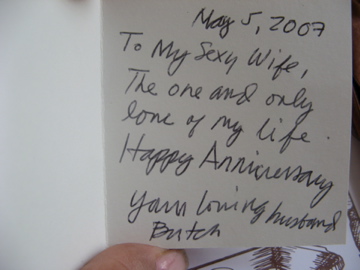 May 5, 2007
To My Sexy Wife,
The one and only
love of my life.
Happy Anniversary
Your loving husband
Butch